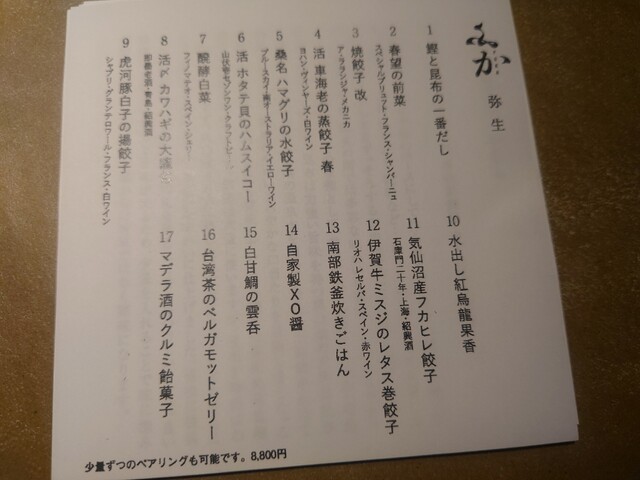 ふか
弥生
1 鰹と昆布の一番だし
2 春望の前菜
スペシャルブリュット・フランス・シャンパーニュ
3 焼餃子 改
ア・ラランジャ・メカニカ
4 活 車海老の蒸餃子 春
ヨハン・ヴィンヤーズ・白ワイン
5 桑名 ハマグリの水餃子
ブルースカイ・南オーストラリア・イエローワイン
6 活 ホタテ貝のハムスイコー
7 醗酵白菜
フィノマテオ・スペイン・シェリー
8 活〆 カワハギの大
即墨老酒・青島・紹興酒
9 虎河豚白子の揚餃子
シャブリ・グランテロワール・フランス・白ワイン
10 水出し紅烏龍果香
11 気仙沼産フカヒレ餃子
石庫門二十年・上海・紹興酒
12 伊賀牛ミスジのレタス巻餃子
リオハレセルバ・スペイン・赤ワイン
13 南部鉄釜炊きごはん
14 自家製XO醤
15 白甘鯛の雲呑
16 台湾茶のベルガモットゼリー
17 マデラ酒のクルミ飴菓子
少量ずつのペアリングも可能です。8,800円